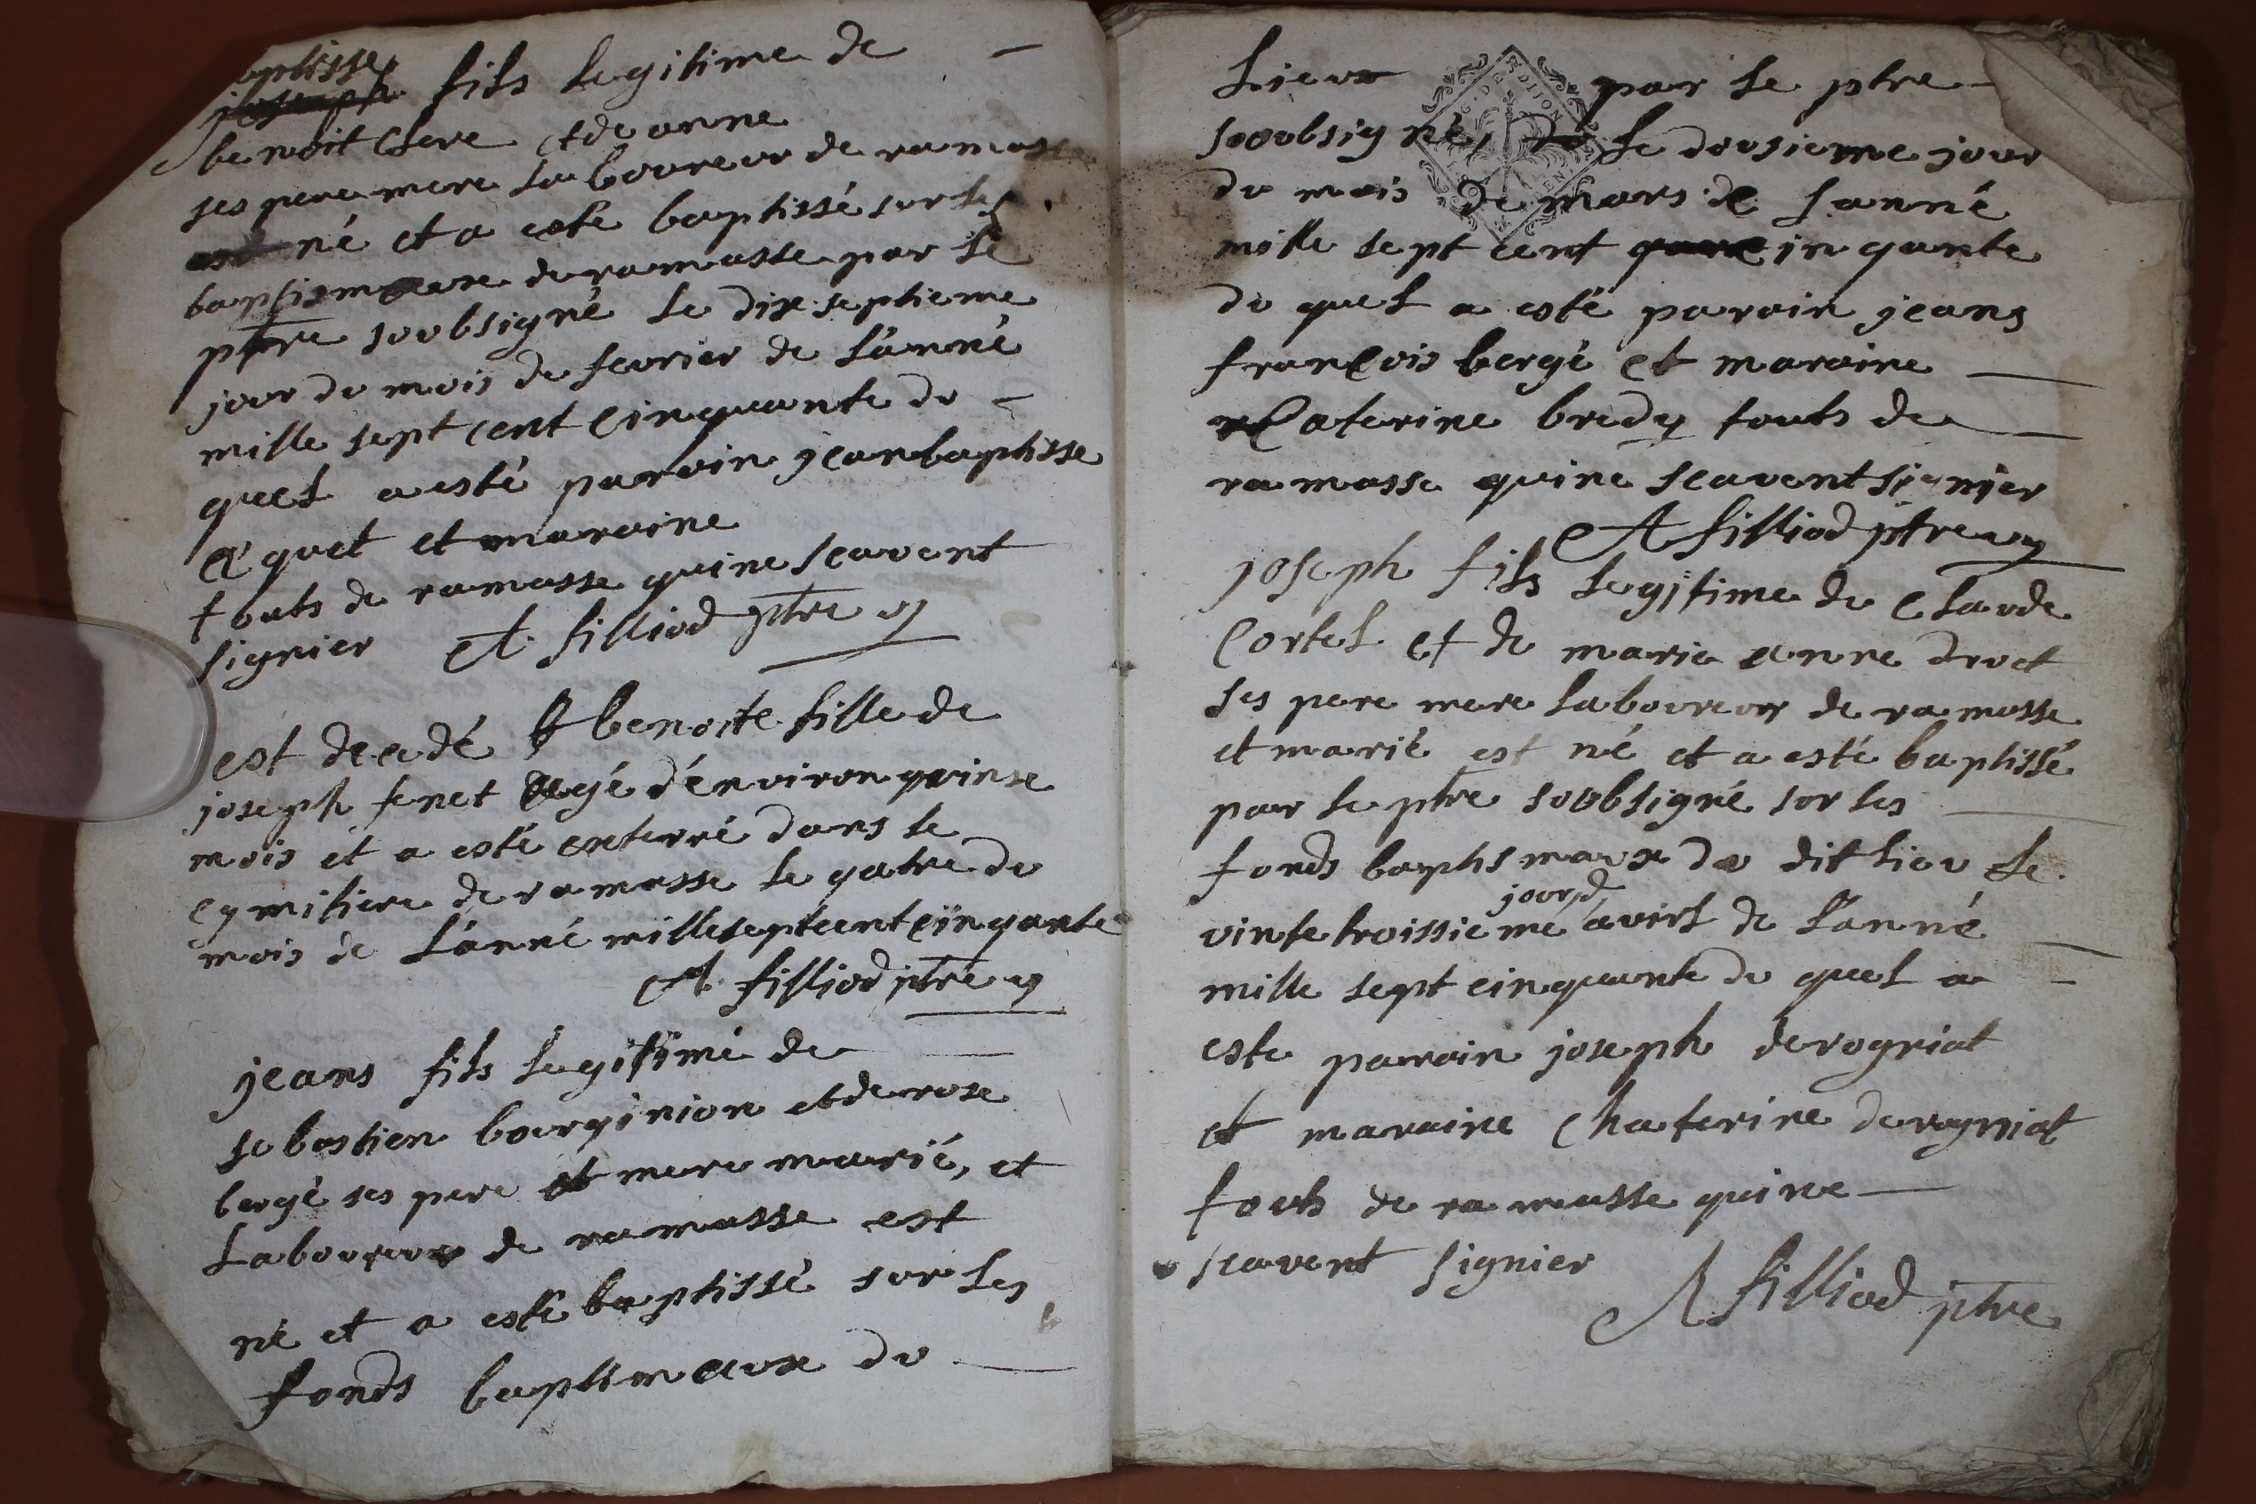 baptisse
joseph fils legitime de
benoit Clere et de anne
ses pere mere laboureur de ramasse
est né et a esté baptissé sur les
baptismeaux de ramasse par le
ptre soubsigné le dix septieme
jour du mois de fevrier de l'anné
mille sept cent cinquante du
quel a esté parain jean baptisse
et maraine
touts de ramasse qui ne scavent
signier A. filliod ptre
est decedé benoite fille de
joseph fenet agé d'environ quinse
mois et a esté enterré dans le
cymitiere de ramasse le quatre du
mois de l'anné mille sept cent cinqante
A. filliod ptre
jeans fils legitime de
sebastien bourginion et de rose
bergé ses pere et mere marié, et
laboureur de ramasse est
né et a esté baptissé sur les
fonds baptimeaux du
lieux par le ptre
sooubsigné, le dousieme jour
du mois de mars de l'anné
mille sept cent cinqante
du quel a esté parain jeans
françois bergé et maraine
Caterine bredy touts de
ramasse qui ne scavent signier
A filliod ptre
joseph fils legitime de Claude
Cortel et de marie anne druet
ses pere mere laboureur de ramasse
et marié est né et a esté baptissé
par le ptre soubsigné sur les
fonds baptismaux du dit lieu le
jour d
vinte troissieme avirl de l'anné
mille sept cinquante du quel a
este parain joseph derogniat
et maraine Chaterine derogniat
touts de ramasse qui ne
scavent signier
A filliod ptre